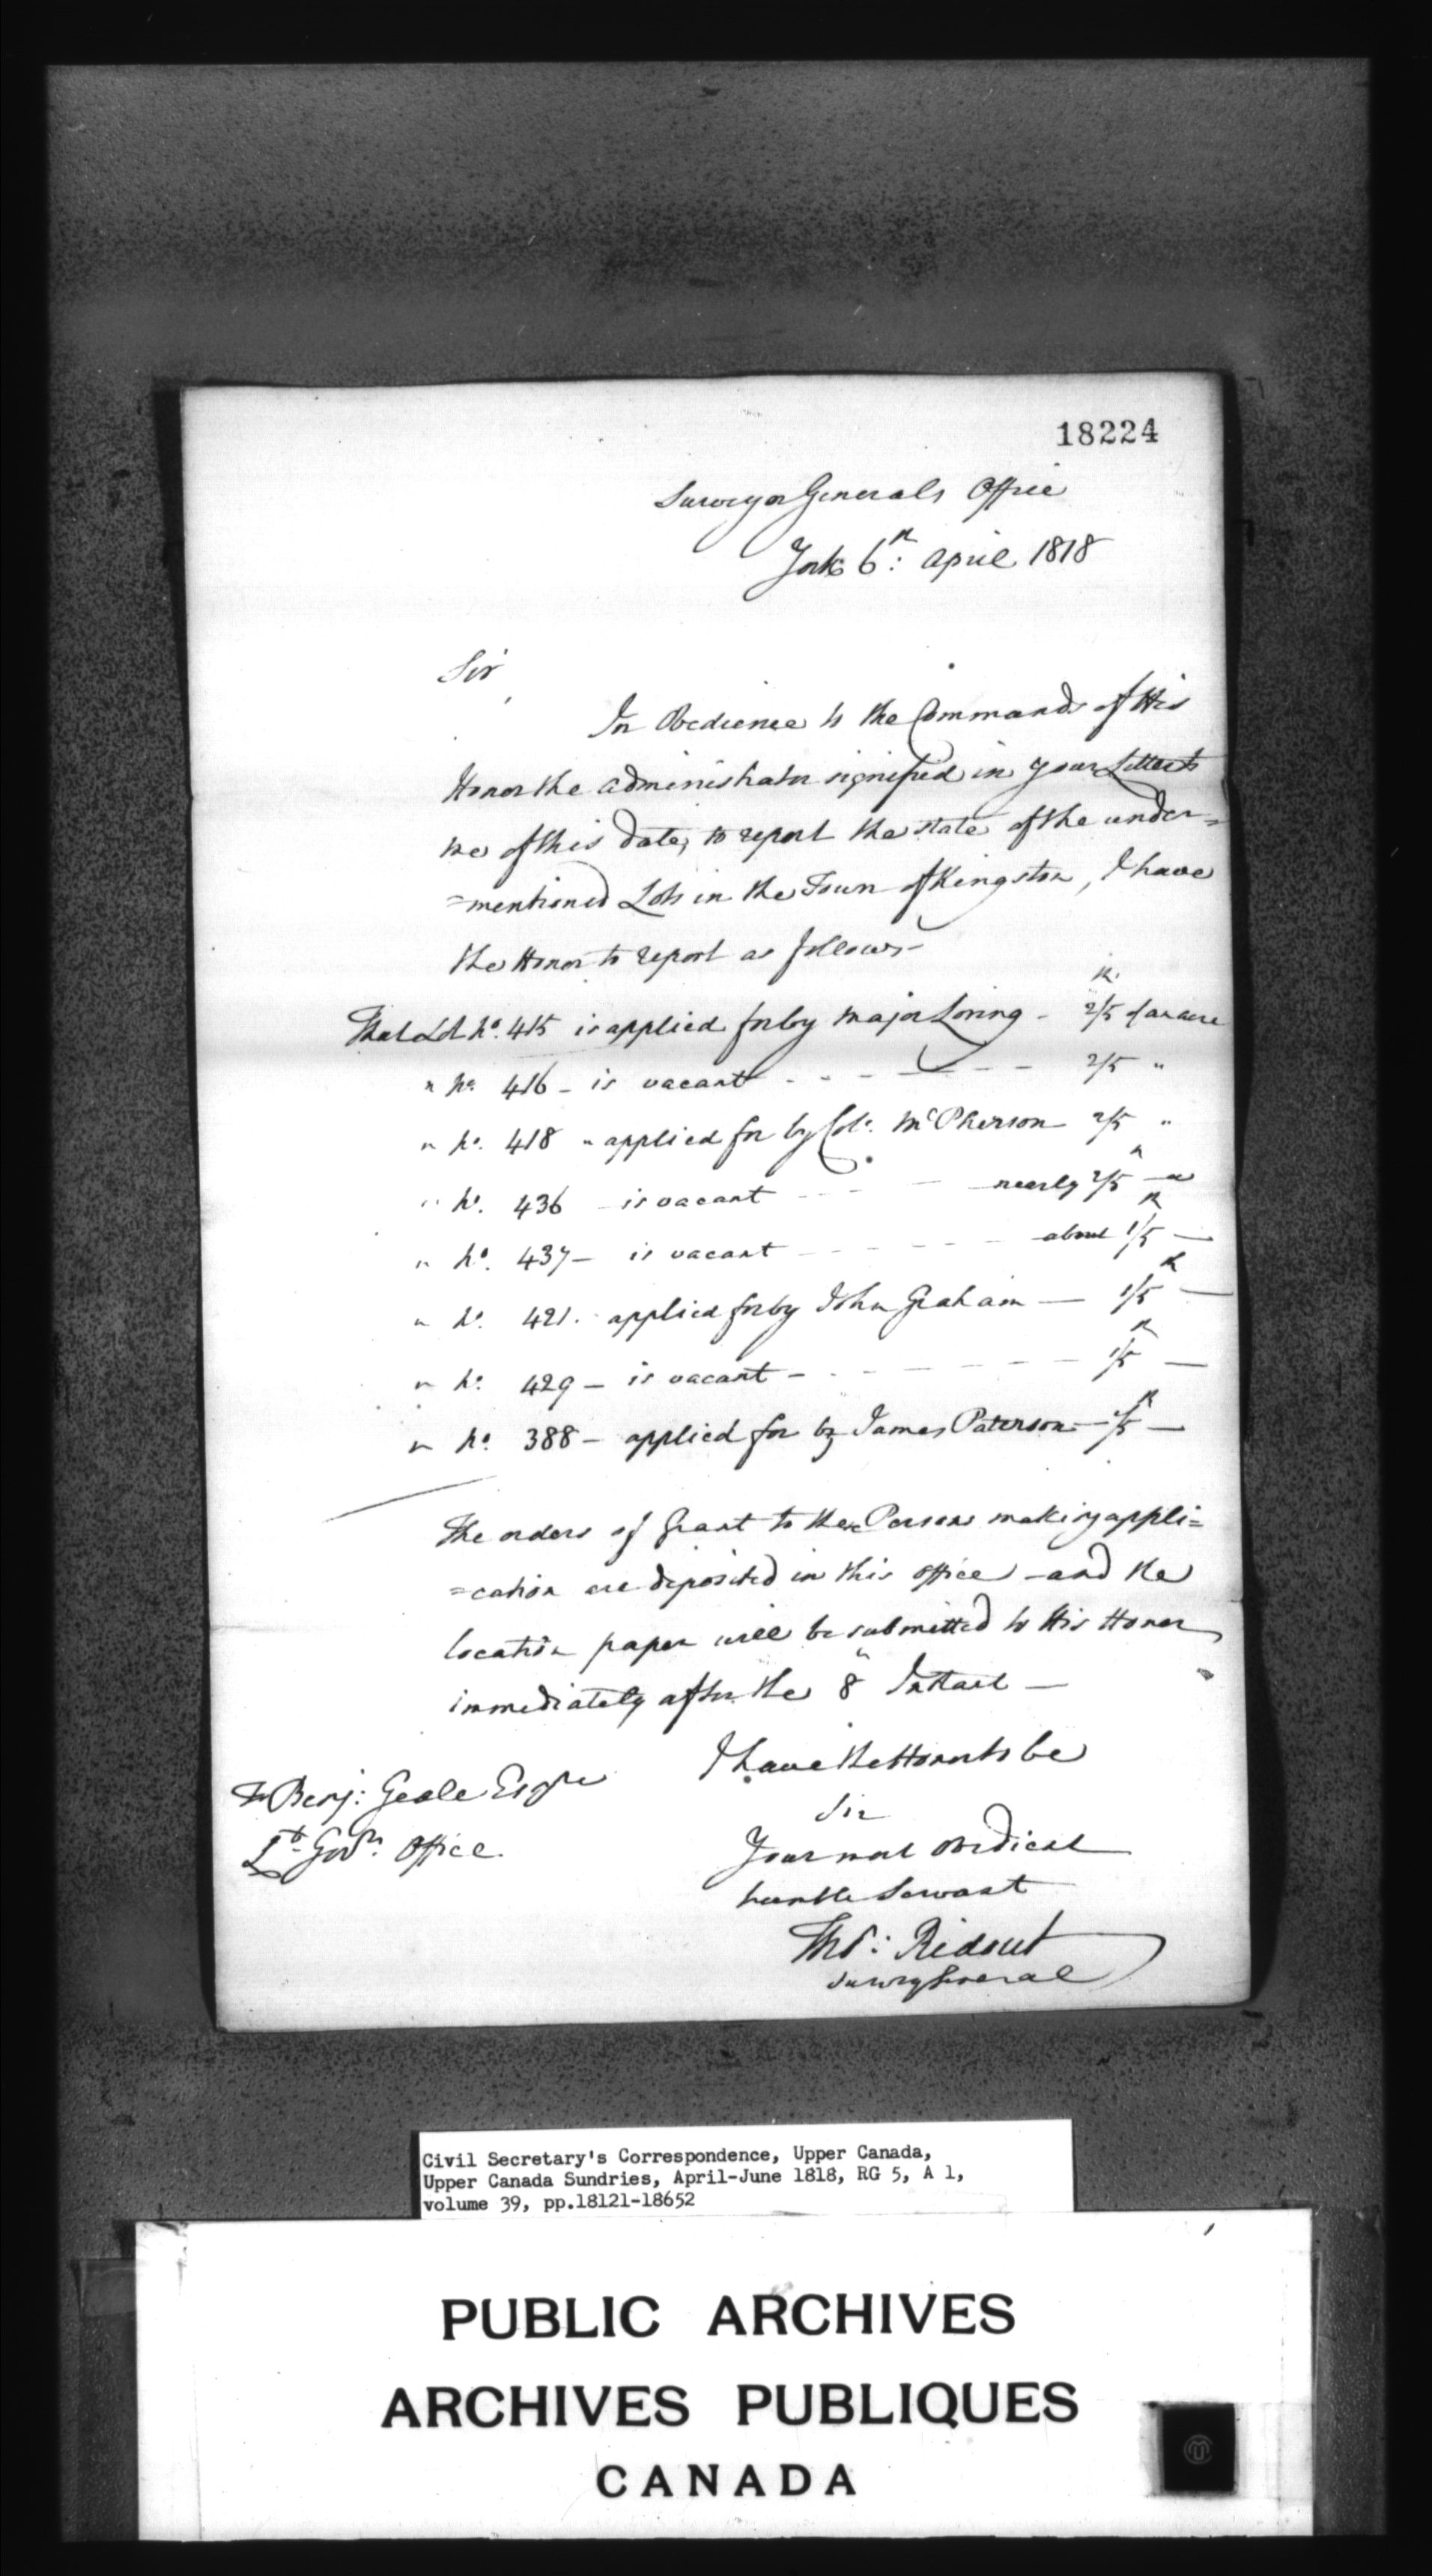 18224
Surveyor Generals Office
York 6th: April 1818
Sir
In Obedience to the Commands of His
Honor the Administrator signified in your Letter to
me of this date, to report the state of the under=
=mentioned Lots in the Town of Kingston, I have
the Honor to report as follows-
That Lot No. 415 is applied for by Major Loring - 2/5th of an acre
" No. 416 - is vacant - - - - - - 2/5 "
" No. 418 " applied for by Col: McPherson 2/5 "
" No. 436 - is vacant - - - nearly 2/5th - "
" No. 437 - is vacant - - - - - about 1/5th -
" No. 421. applied for by John Graham - 1/5th -
" No. 429 - is vacant - - - - - - 1/5th -
" No. 388 - applied for by James Paterson - /5th -
The orders of Grant to these Persons making appli=
=cation are deposited in this office - and the
location paper will be submitted to His Honor
immediately after the 8th Instant -
I have the Honor to be
Sir
Your most Obedient
humble Servant
Thos: Ridout
Survey General
To Benj: Geale Esqre
Lt. Govrs. Office.
Civil Secretary's Correspondence, Upper Canada,
Upper Canada Sundries, April-June 1818, RG 5, A 1,
volume 39, pp.18121-18652
PUBLIC ARCHIVES
ARCHIVES PUBLIQUES
CANADA